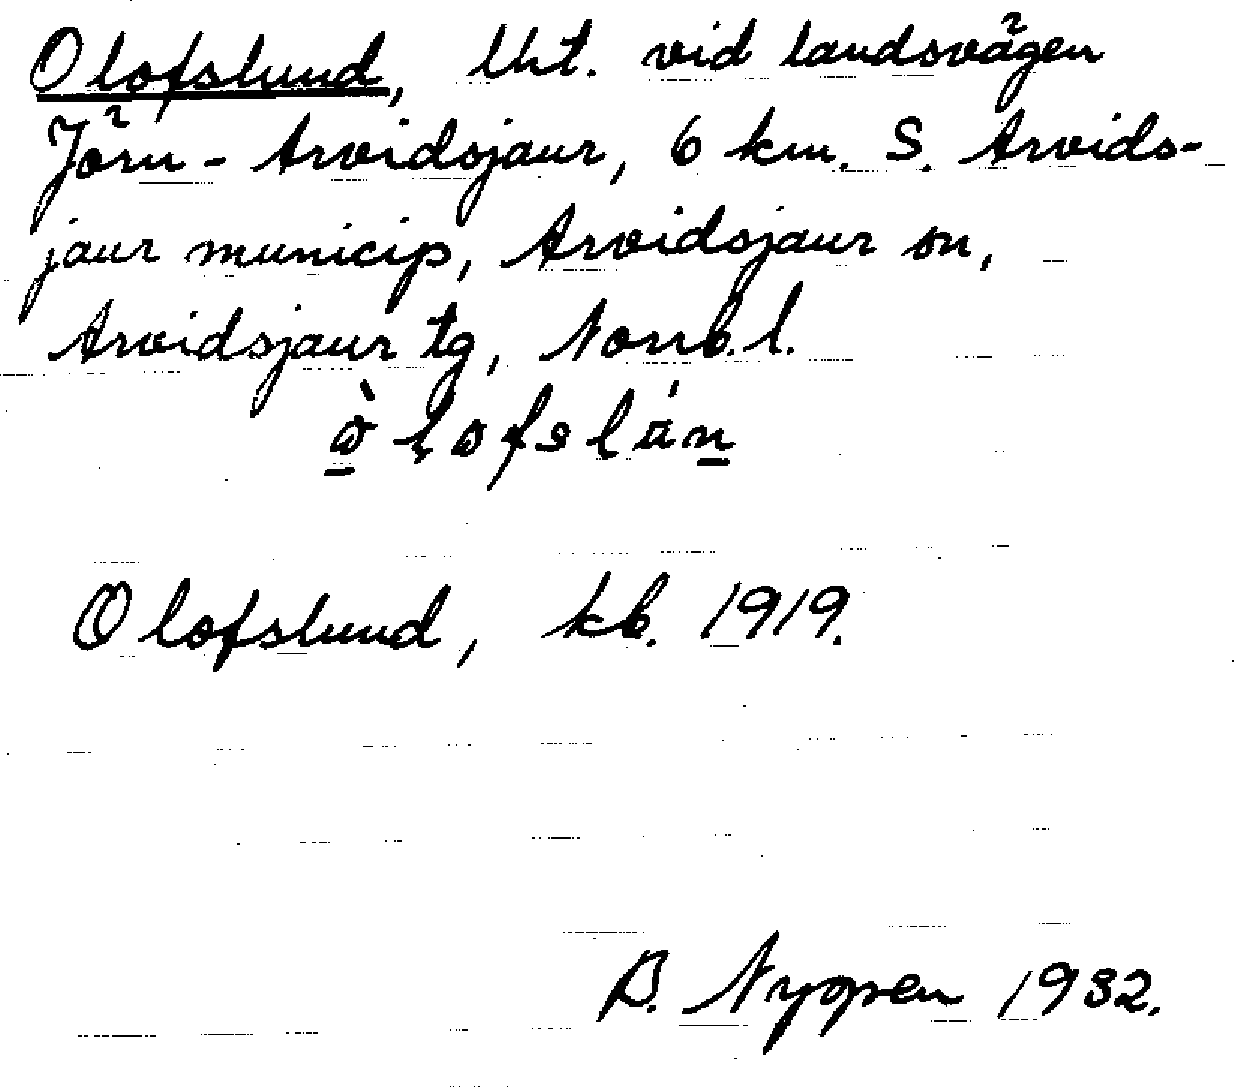 Olofslund, lht. vid landsvägen
Jörn - Arvidsjaur, 6 km. S. Arvids-
jaur municip, Arvidsjaur sn,
Arvidsjaur tg, Norrb. l.
Olofslund, kb. 1919.
B. Nygren 1932.